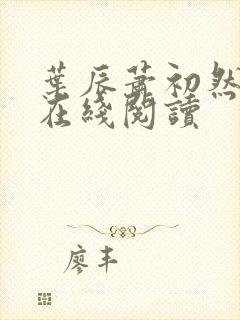 葉辰蕭初然
在綫閱讀
廖丰